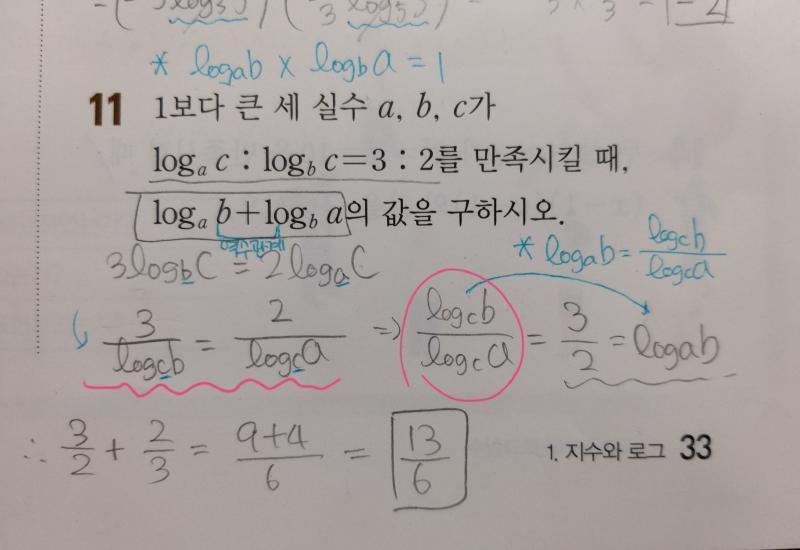 * logab × logba = 1
11 1보다 큰 세 실수 a, b, c가
log_a c : log_b c=3 : 2를 만족시킬 때,
log_a b+log_b a의 값을 구하시오.
역수관계
* logab = logcb/logca
3logbC = 2logaC
3/logcb = 2/logca ⇒ logcb/logca = 3/2 = logab
∴ 3/2 + 2/3 = 9+4/6 = 13/6
1. 지수와 로그 33